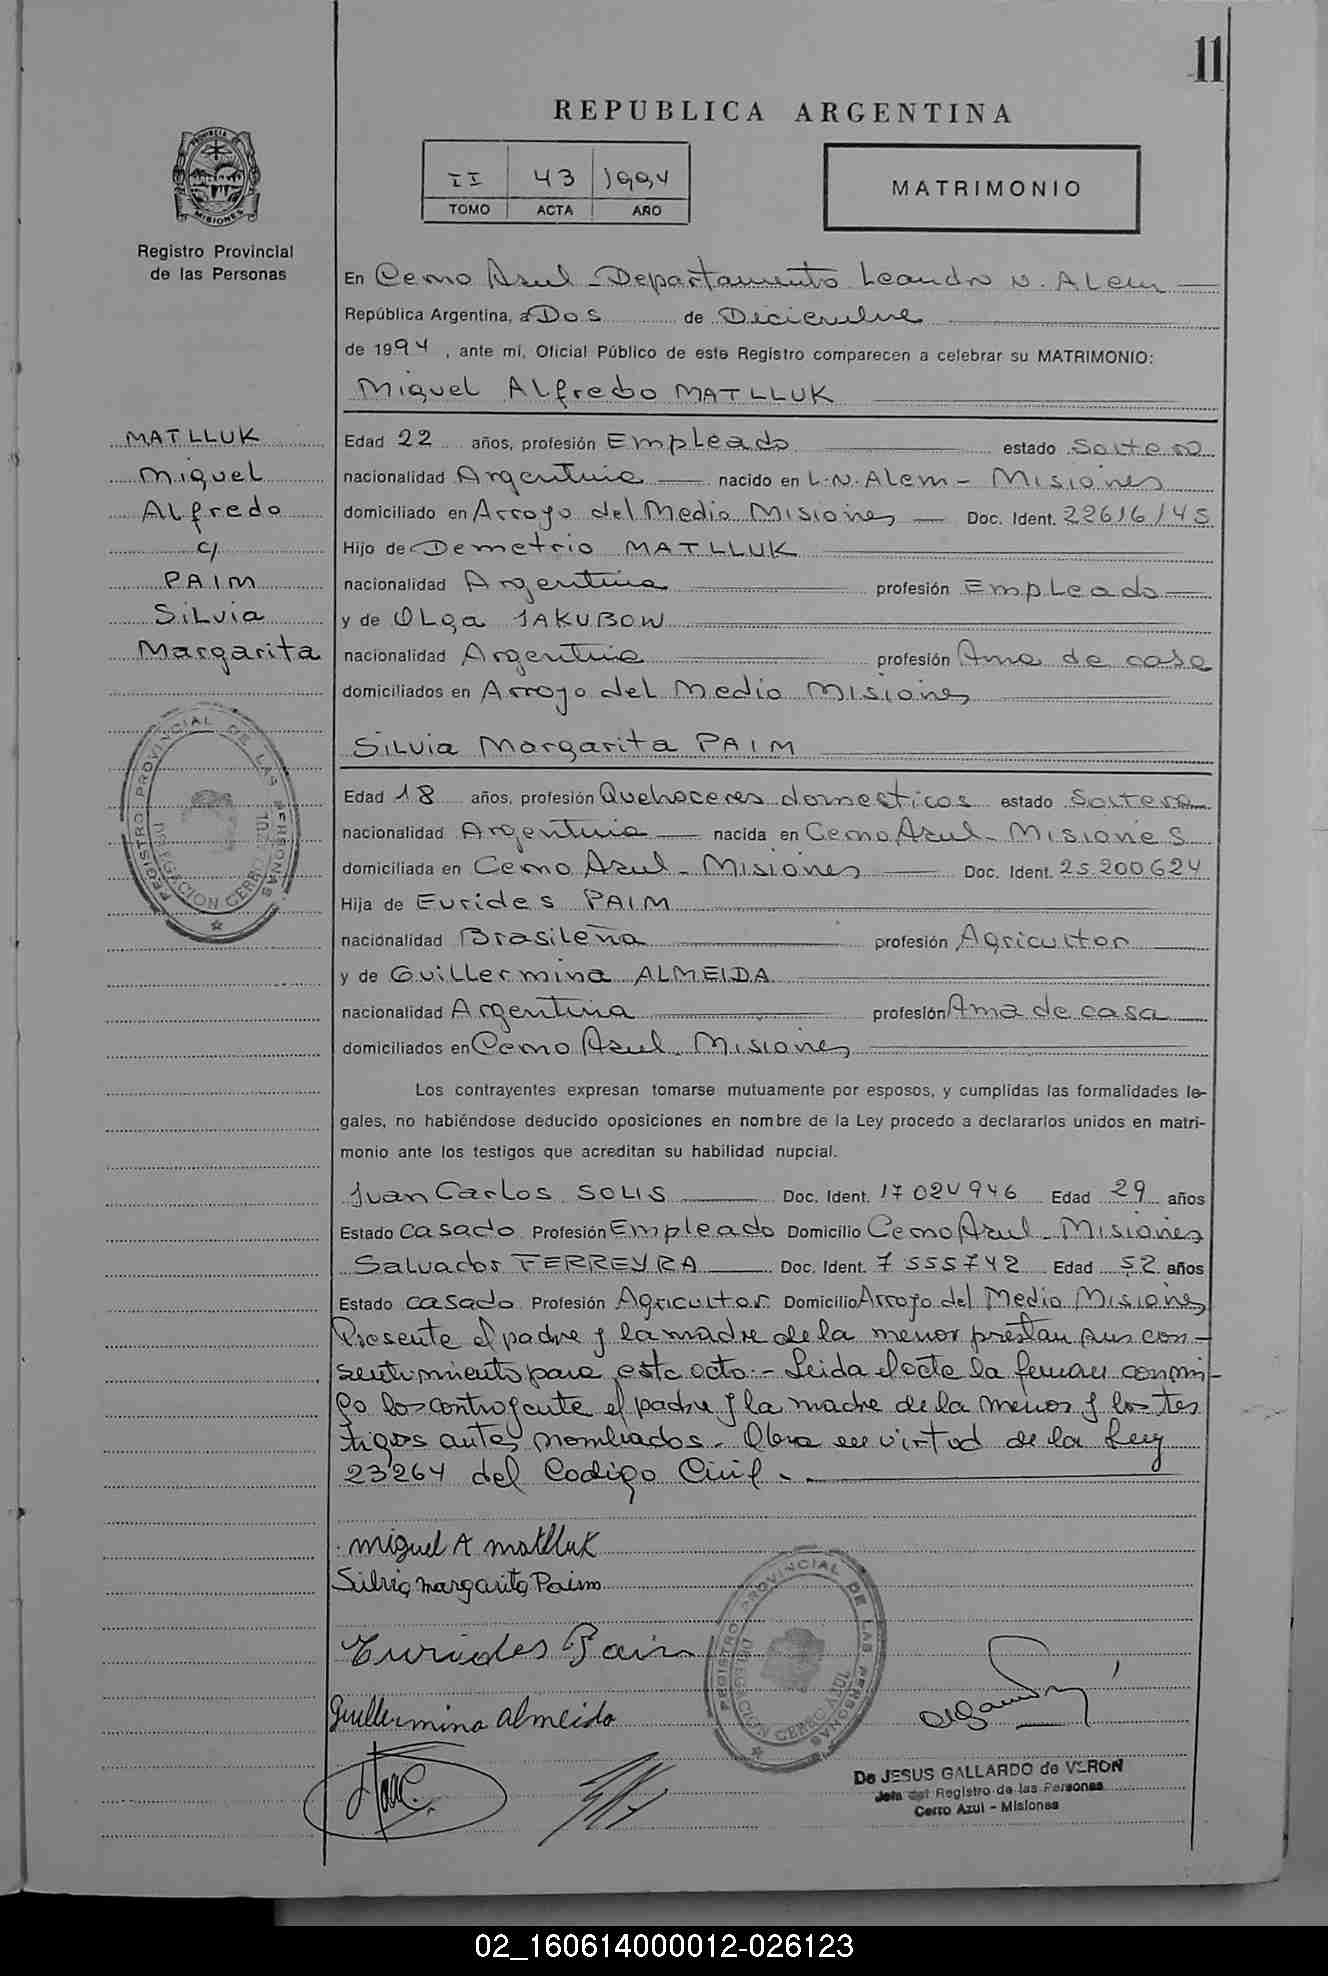 11
REPUBLICA ARGENTINA
PROVINCIA DE
MISIONES
Registro Provincial
de las Personas
II 43 1994
TOMO ACTA AÑO
MATRIMONIO
En Cerro Azul - Departamento Leandro N. Alem
República Argentina, a Dos de Diciembre
de 1994, ante mí, Oficial Público de este Registro comparecen a celebrar su MATRIMONIO:
Miguel Alfredo MATLLUK
MATLLUK
Miguel
Alfredo
c/
PAIM
Silvia
Margarita
Edad 22 años, profesión Empleado estado Soltero
nacionalidad Argentina nacido en L.N. Alem - Misiones
domiciliado en Arroyo del Medio Misiones Doc. Ident. 22616145
Hijo de Demetrio MATLLUK
nacionalidad Argentina profesión Empleado
y de Olga JAKUBOW
nacionalidad Argentina profesión Ama de casa
domiciliados en Arroyo del Medio Misiones
Silvia Margarita PAIM
Edad 18 años, profesión Quehaceres domesticos estado Soltera
nacionalidad Argentina nacida en Cerro Azul - Misiones
domiciliada en Cerro Azul - Misiones Doc. Ident. 25.200624
Hija de Eurides PAIM
nacionalidad Brasileña profesión Agricultor
y de Guillermina ALMEIDA
nacionalidad Argentina profesión Ama de casa
domiciliados en Cerro Azul - Misiones
REGISTRO PROVINCIAL DE LAS PERSONAS
DELEGACION CERRO AZUL
Los contrayentes expresan tomarse mutuamente por esposos, y cumplidas las formalidades le-
gales, no habiéndose deducido oposiciones en nombre de la Ley procedo a declararlos unidos en matri-
monio ante los testigos que acreditan su habilidad nupcial.
Juan Carlos SOLIS Doc. Ident. 17 024 946 Edad 29 años
Estado casado Profesión Empleado Domicilio Cerro Azul - Misiones
Salvador FERREYRA Doc. Ident. 7 555742 Edad 52 años
Estado casado Profesión Agricultor Domicilio Arroyo del Medio Misiones
Presente el padre y la madre de la menor prestan sus con-
sentimiento para este acto.- Leida el acta la firman conmi-
go los contrayente el padre y la madre de la menor y los tes
tigos antes nombrados. Obra en virtud de la Ley
23264 del Codigo Civil.
Miguel A Matlluk
Silvia Margarita Paim
Eurides Paim
Guillermina Almeida
REGISTRO PROVINCIAL DE LAS PERSONAS
DELEGACION CERRO AZUL
De JESUS GALLARDO de VERON
Jefa del Registro de las Personas
Cerro Azul - Misiones
02_160614000012-026123